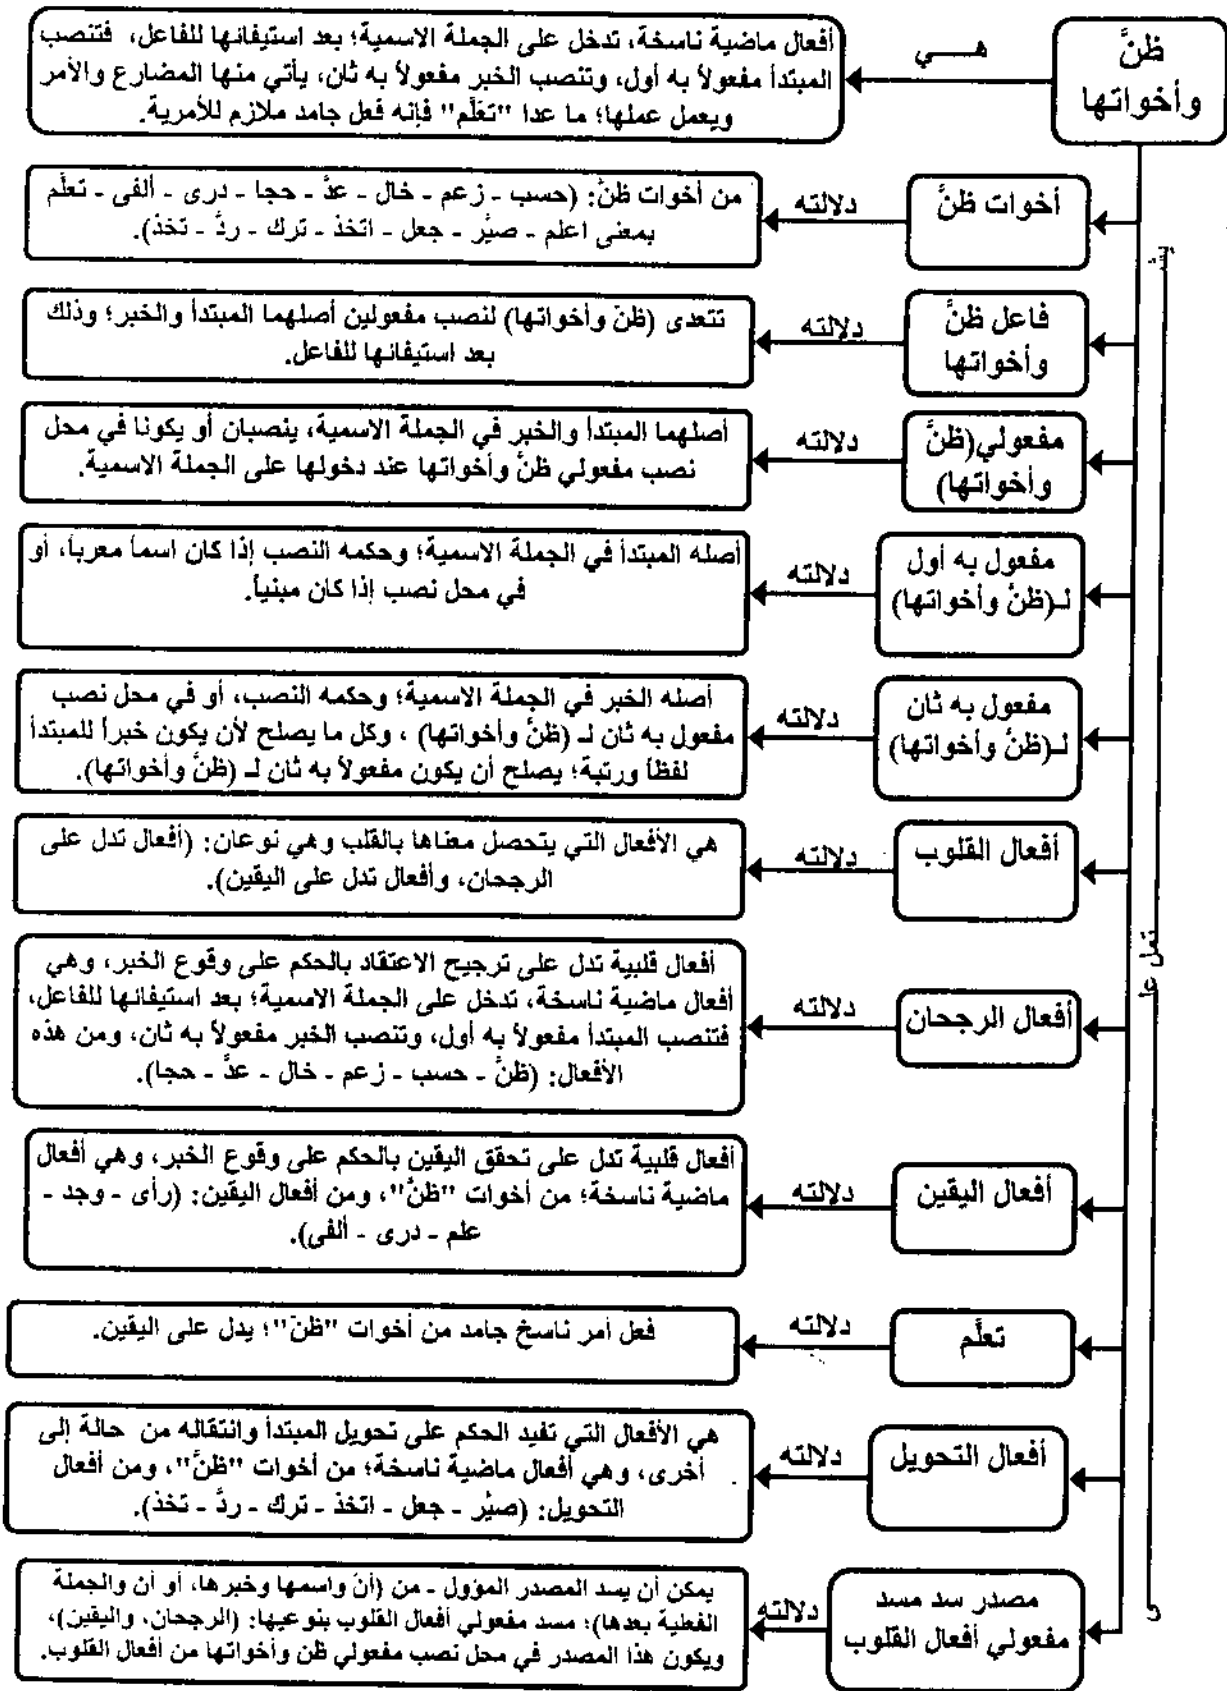 ظنَّ
وأخواتها
هـــي
أفعال ماضية ناسخة، تدخل على الجملة الاسمية؛ بعد استيفانها للفاعل، فتنصب
المبتدأ مفعولاً به أول، وتنصب الخبر مفعولاً به ثان، يأتي منها المضارع والأمر
ويعمل عملها؛ ما عدا "تعلَّم" فإنه فعل جامد ملازم للأمرية.
أخوات ظنَّ
دلالته
من أخوات ظنَّ: (حسب - زعم - خال - عدَّ - حجا - درى - ألفى - تعلَّم
بمعنى اعلم - صيَّر - جعل - اتخذ - ترك - ردَّ - تخذ).
فاعل ظنَّ
وأخواتها
دلالته
تتعدى (ظنَّ وأخواتها) لنصب مفعولين أصلهما المبتدأ والخبر؛ وذلك
بعد استيفانها للفاعل.
مفعولي(ظنَّ
وأخواتها)
دلالته
أصلهما المبتدأ والخبر في الجملة الاسمية، ينصبان أو يكونا في محل
نصب مفعولي ظنَّ وأخواتها عند دخولها على الجملة الاسمية.
مفعول به أول
لـ(ظنَّ وأخواتها)
دلالته
أصله المبتدأ في الجملة الاسمية؛ وحكمه النصب إذا كان اسماً معرباً، أو
في محل نصب إذا كان مبنياً.
مفعول به ثان
لـ(ظنَّ وأخواتها)
دلالته
أصله الخبر في الجملة الاسمية؛ وحكمه النصب، أو في محل نصب
مفعول به ثان لـ (ظنَّ وأخواتها) ، وكل ما يصلح لأن يكون خبراً للمبتدأ
لفظاً ورتبة؛ يصلح أن يكون مفعولاً به ثان لـ (ظنَّ وأخواتها).
أفعال القلوب
دلالته
هي الأفعال التي يتحصل معناها بالقلب وهي نوعان: (أفعال تدل على
الرجحان، وأفعال تدل على اليقين).
أفعال الرجحان
دلالته
أفعال قلبية تدل على ترجيح الاعتقاد بالحكم على وقوع الخبر، وهي
أفعال ماضية ناسخة، تدخل على الجملة الاسمية؛ بعد استيفانها للفاعل،
فتنصب المبتدأ مفعولاً به أول، وتنصب الخبر مفعولاً به ثان، ومن هذه
الأفعال: (ظنَّ - حسب - زعم - خال - عدَّ - حجا).
أفعال اليقين
دلالته
أفعال قلبية تدل على تحقق اليقين بالحكم على وقوع الخبر، وهي أفعال
ماضية ناسخة؛ من أخوات "ظنَّ"، ومن أفعال اليقين: (رأى - وجد -
علم - درى - ألفى).
تعلَّم
دلالته
فعل أمر ناسخ جامد من أخوات "ظنَّ"؛ يدل على اليقين.
أفعال التحويل
دلالته
هي الأفعال التي تفيد الحكم على تحويل المبتدأ وانتقاله من حالة إلى
أخرى، وهي أفعال ماضية ناسخة؛ من أخوات "ظنَّ"، ومن أفعال
التحويل: (صيَّر - جعل - اتخذ - ترك - ردَّ - تخذ).
مصدر سد مسد
مفعولي أفعال القلوب
دلالته
يمكن أن يسد المصدر المؤول - من (أنَّ واسمها وخبرها، أو أن والجملة
الفعلية بعدها)؛ مسد مفعولي أفعال القلوب بنوعيها: (الرجحان، واليقين)،
ويكون هذا المصدر في محل نصب مفعولي ظن وأخواتها من أفعال القلوب.